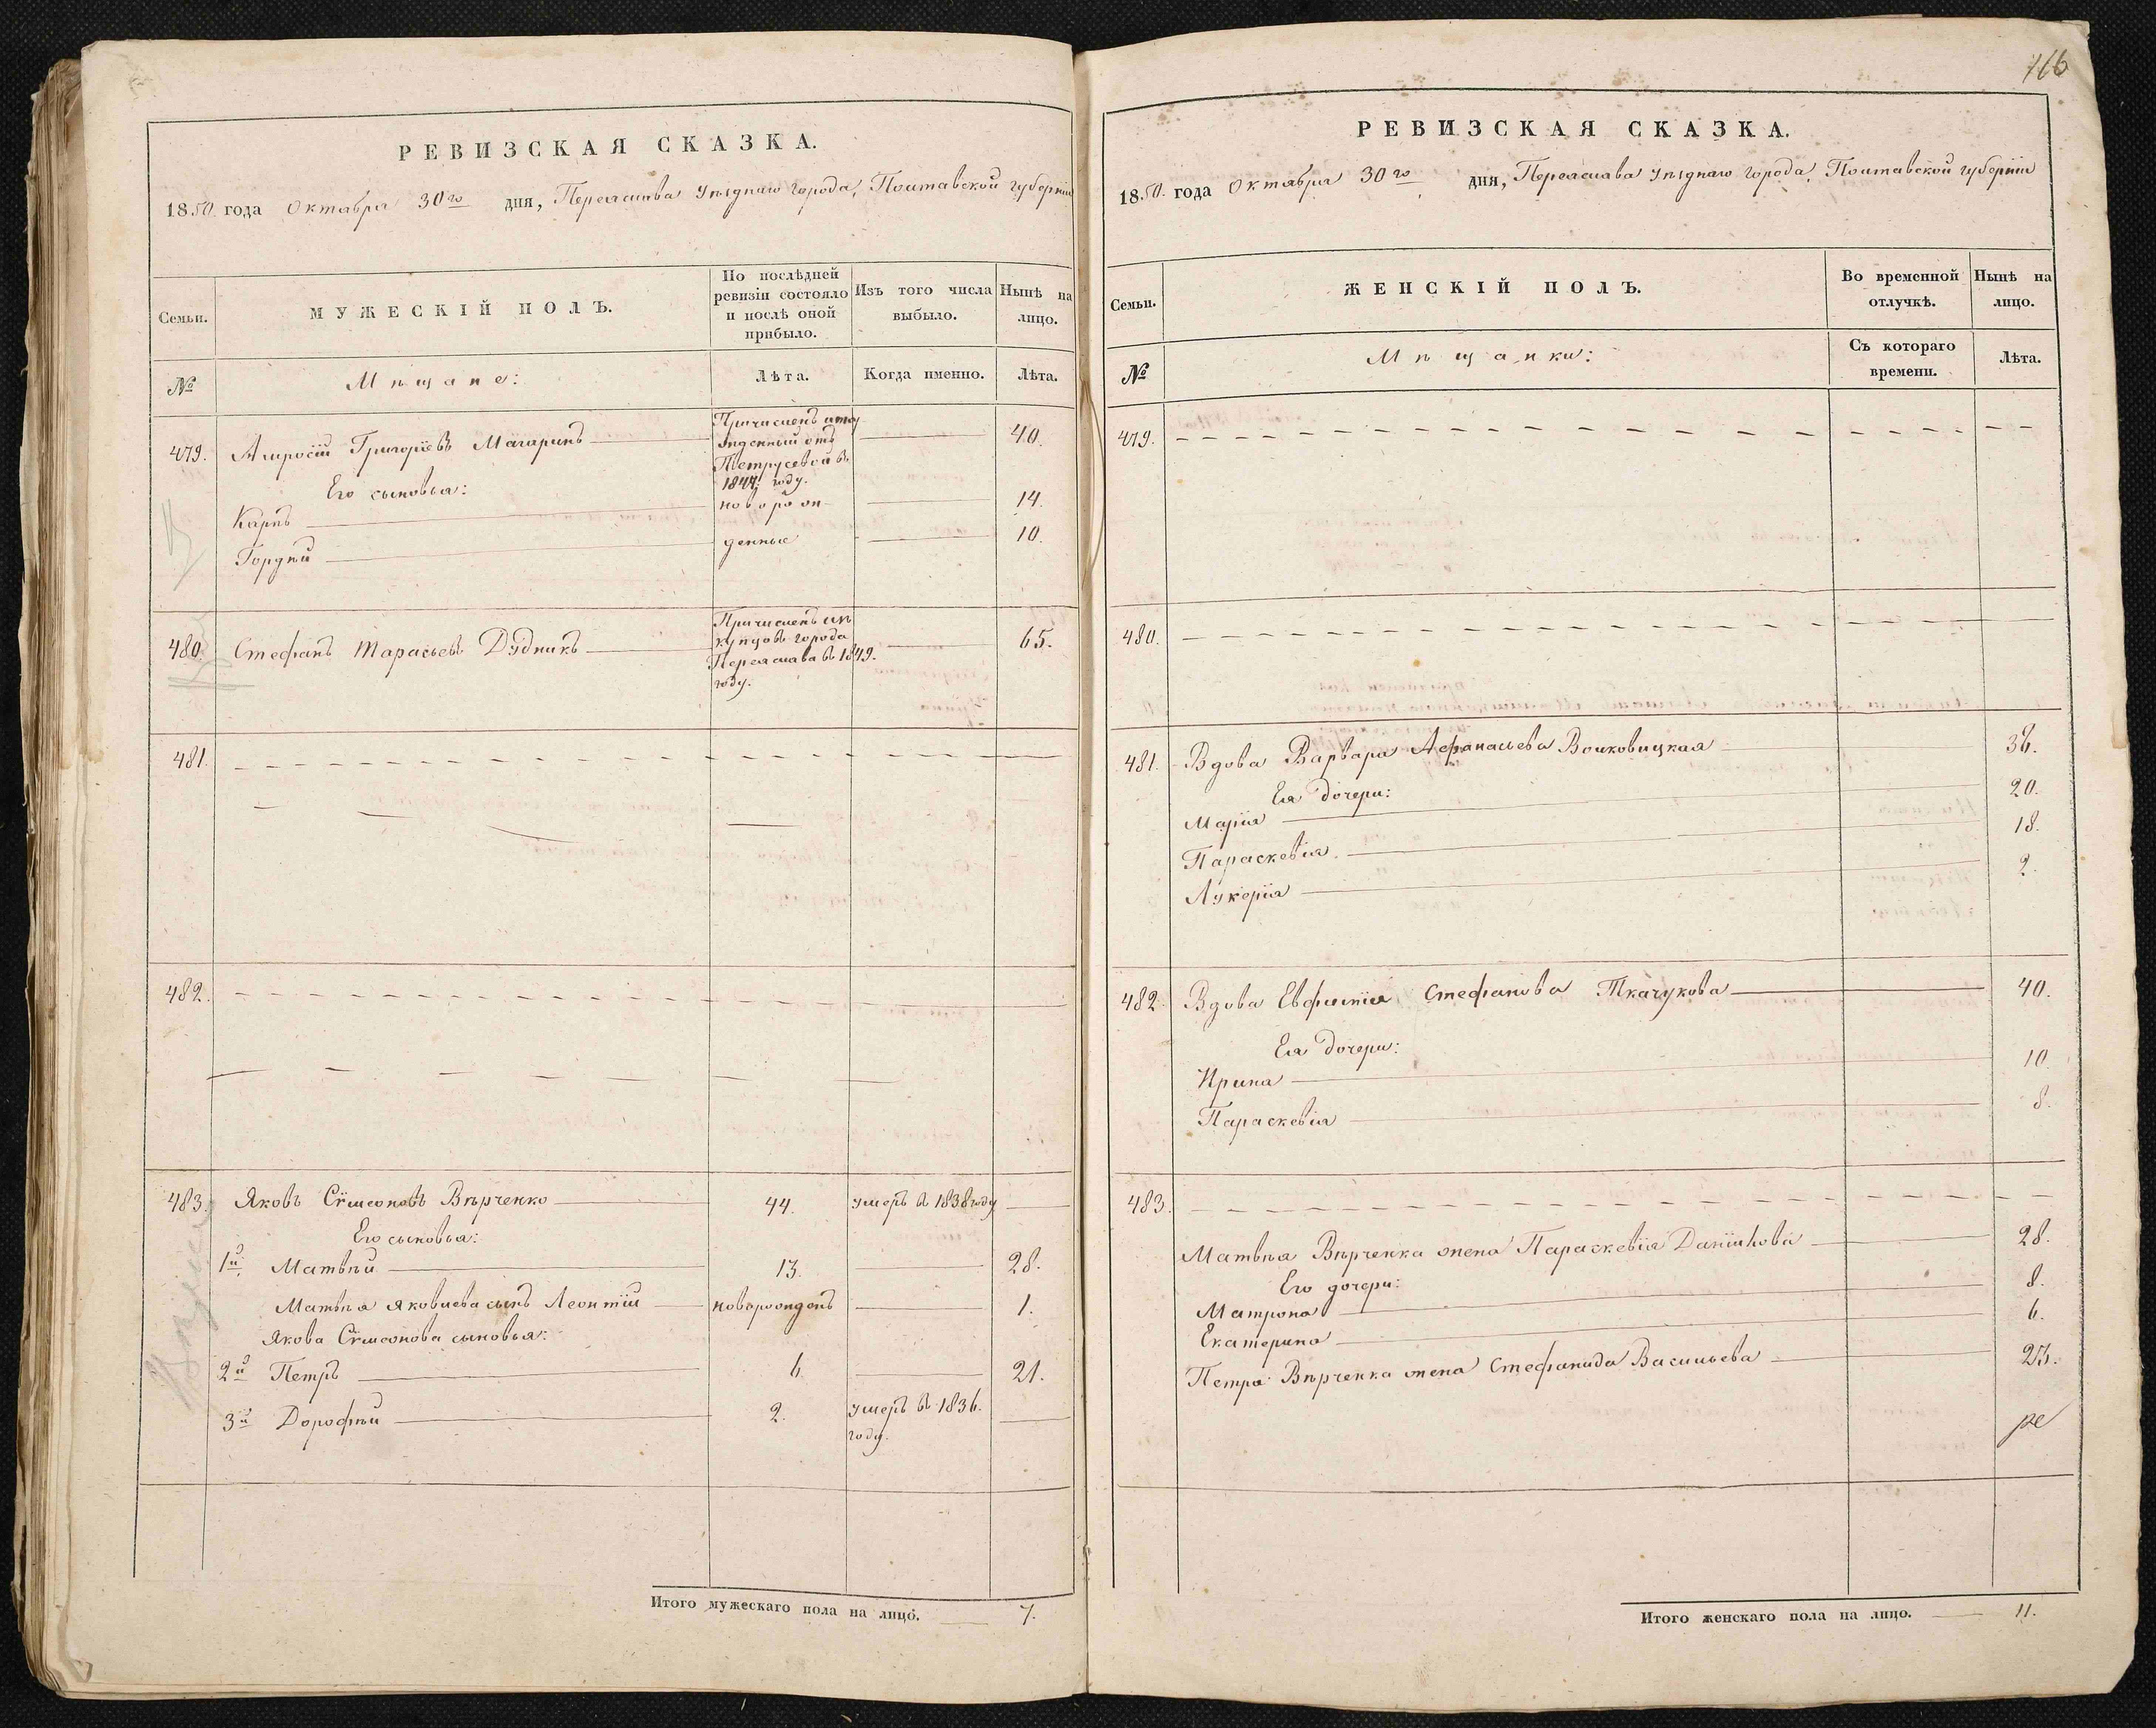 166
РЕВИЗСКАЯ СКАЗКА.
1850. года Октября 30го дня, Переяслава Уѣзднаго города, Полтавской губерніи
Семьи.
МУЖЕСКІЙ ПОЛЪ.
По послѣдней
ревизіи состояло
и послѣ оной
прибыло.
Изъ того числа
выбыло.
Нынѣ на
лицо.
№
Мѣщане:
Лѣта.
Когда именно.
Лѣта.
479. Амросій Григоріевъ Магаринъ 40.
Причисленъ
отъ
Петрусевой въ
1844. году.
Его сыновья:
Карпъ новорож 14.
Гордѣй денные 10.
480. Стефанъ Тарасьевъ Дудникъ 65.
Причисленъ изъ
купцовъ города
Переяслава въ 1849.
году.
481.
482.
483. Яковъ Сѵмеоновъ Вѣрченко 44. умеръ въ 1838 году
Его сыновья:
1й Матвѣй 13. 28.
Матвѣя Яковлева сынъ Леонтій новорожденъ 1.
Якова Сѵмеонова сыновья:
2й Петръ 6. 21.
3й Дорофѣй 2. умеръ въ 1836.
году.
Итого мужескаго пола на лицо. 7.
РЕВИЗСКАЯ СКАЗКА.
1850. года Октября 30го дня, Переяслава Уѣзднаго города, Полтавской губерніи
Семьи.
ЖЕНСКІЙ ПОЛЪ.
Во временной
отлучкѣ.
Нынѣ на
лицо.
№
Мѣщанки:
Съ котораго
времени.
Лѣта.
479.
480.
481. Вдова Варвара Афанасьева Волковицкая 36.
Ея дочери:
Марія 20.
Параскевія 18.
Лукерія 2.
482. Вдова Евфимія Стефанова Ткачукова 40.
Ея дочери:
Ирина 10.
Параскевія 8.
483.
Матвѣя Вѣрченка жена Параскевія Данілова 28.
Его дочери:
Матрона 8.
Екатерина 6.
Петра Вѣрченка жена Стефанида Васильева 23.
Итого женскаго пола на лицо. 11.